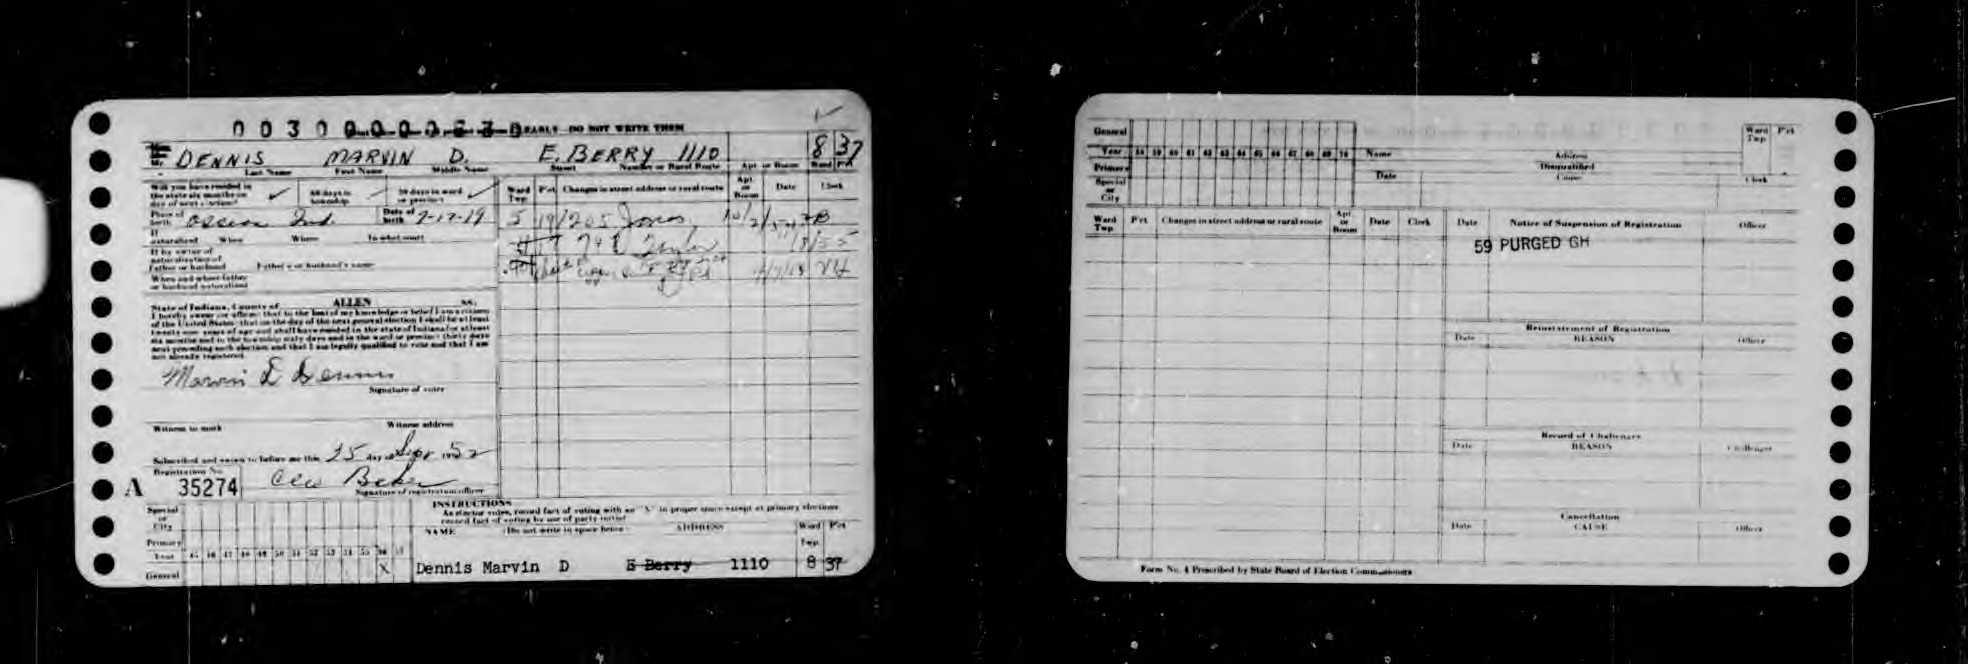 EARLY - DO NOT WRITE THEM
Mr. DENNIS MARVIN D. E. BERRY 1110 8 37
Last Name First Name Middle Name Street Number or Rural Route Apt. or Room Ward Pct
Will you have resided in the state six months on day of next election? ✓ 60 days in township ✓ 30 days in ward or precinct ✓
Place of birth Ossian Ind. Date of birth
If naturalized When Where In what court
If by owner of naturalization of father or husband Father's or husband's name
When and where father or husband naturalized
State of Indiana, County of ALLEN ss.
I hereby swear (or affirm) that to the best of my knowledge or belief I am a citizen
of the United States; that on the day of the next general election I shall be at least
twenty-one years of age and shall have resided in the state of Indiana for at least
six months and in the township sixty days and in the ward or precinct thirty days
next preceding such election and that I am legally qualified to vote and that I am
not already registered.
Marvin D Dennis
Signature of voter
Witness to mark Witness address
Subscribed and sworn to before me this 25 day of Sept 1952
Registration No.
A 35274
Signature of registration officer
Ward Twp. P'ct. Changes in street address or rural route Apt. or Room Date Clerk
5 19 1205 Jones
Special or City
Primary
Year 45 46 47 48 49 50 51 52 53 54 55 56 57
General X
INSTRUCTIONS
As elector votes, record fact of voting with an "X" in proper space except at primary elections
record fact of voting by use of party initial
NAME (Do not write in space below) ADDRESS Ward Twp. P'ct
Dennis Marvin D E Berry 1110 8 37
General
Year 58 59 60 61 62 63 64 65 66 67 68 69 70
Primary
Special or City
Name Address Ward Twp. P'ct
Disqualified
Date Cause Clerk
Ward Twp. P'ct Changes in street address or rural route Apt. or Room Date Clerk
Date Notice of Suspension of Registration Officer
59 PURGED GH
Reinstatement of Registration
Date REASON Officer
Record of Challenges
Date REASON Challenger
Cancellation
Date CAUSE Officer
Form No. 4 Prescribed by State Board of Election Commissioners